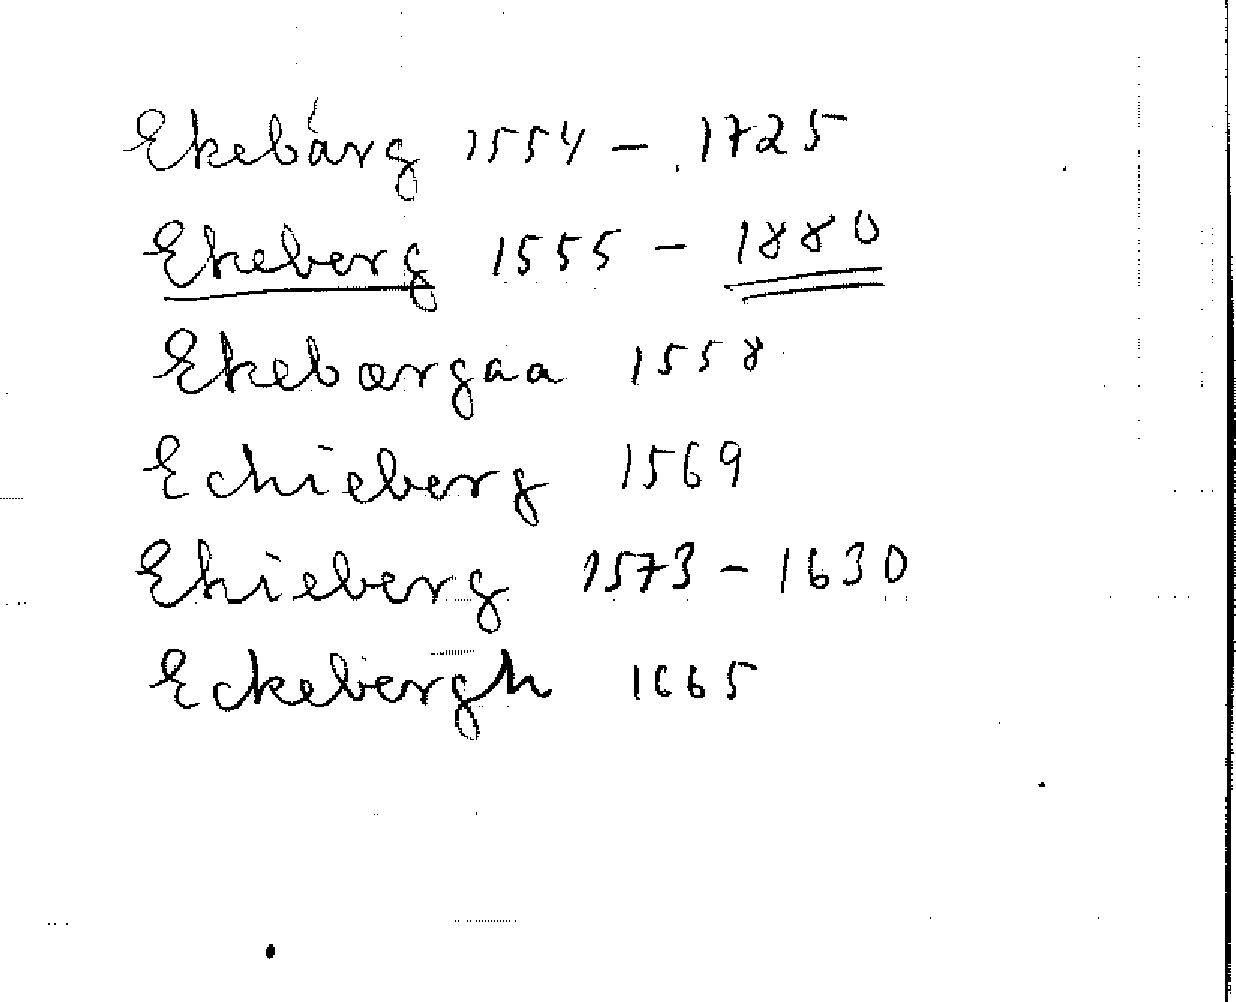 Ekebärg 1554 - 1725
Ekeberg 1555 - 1880
Ekebærgaa 1558
Echieberg 1569
Ekieberg 1573 - 1630
Eckebergh 1665